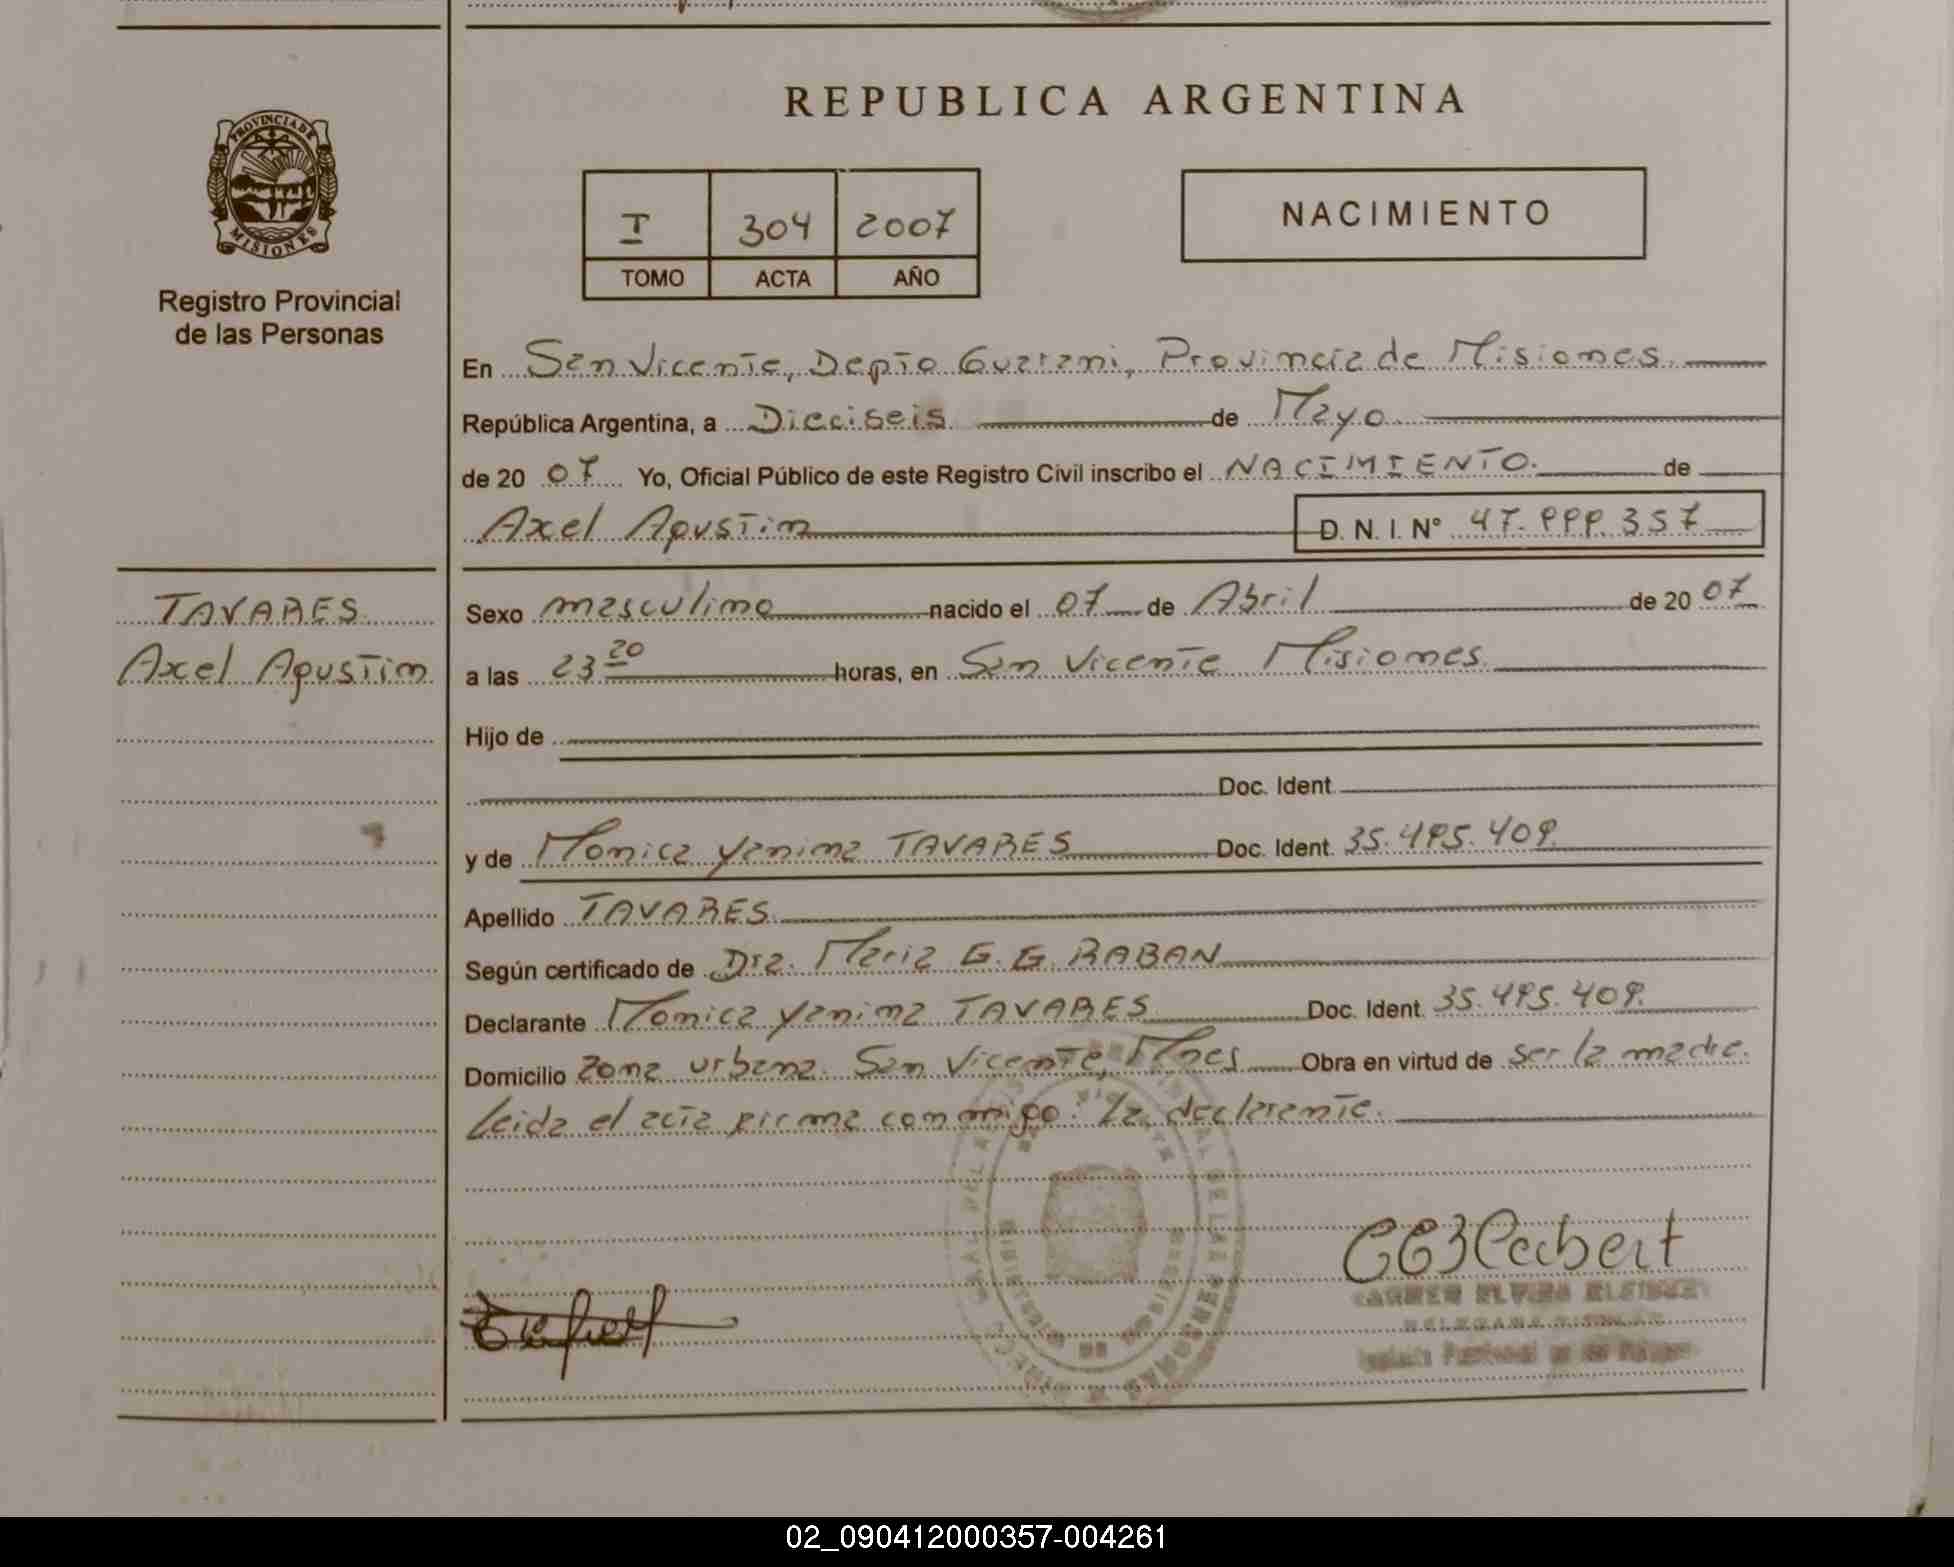 REPUBLICA ARGENTINA
PROVINCIA DE
MISIONES
Registro Provincial
de las Personas
I 304 2007
TOMO ACTA AÑO
NACIMIENTO
En San Vicente, Depto Guarani, Provincia de Misiones
República Argentina, a Dieciseis de Mayo
de 20 07 Yo, Oficial Público de este Registro Civil inscribo el NACIMIENTO. de
Axel Agustin D. N. I. N° 47.999.357
TAVARES
Axel Agustin
Sexo masculino nacido el 07 de Abril de 20 07
a las 23 20 horas, en San Vicente Misiones
Hijo de
Doc. Ident.
y de Monica Yanina TAVARES Doc. Ident. 35.495.409.
Apellido TAVARES
Según certificado de Dra. Maria G. G. RABAN
Declarante Monica Yanina TAVARES Doc. Ident. 35.495.409.
Domicilio Zona urbana. San Vicente, Mnes Obra en virtud de ser la madre.
Leida el acta firma conmigo: La declarante.
02_090412000357-004261